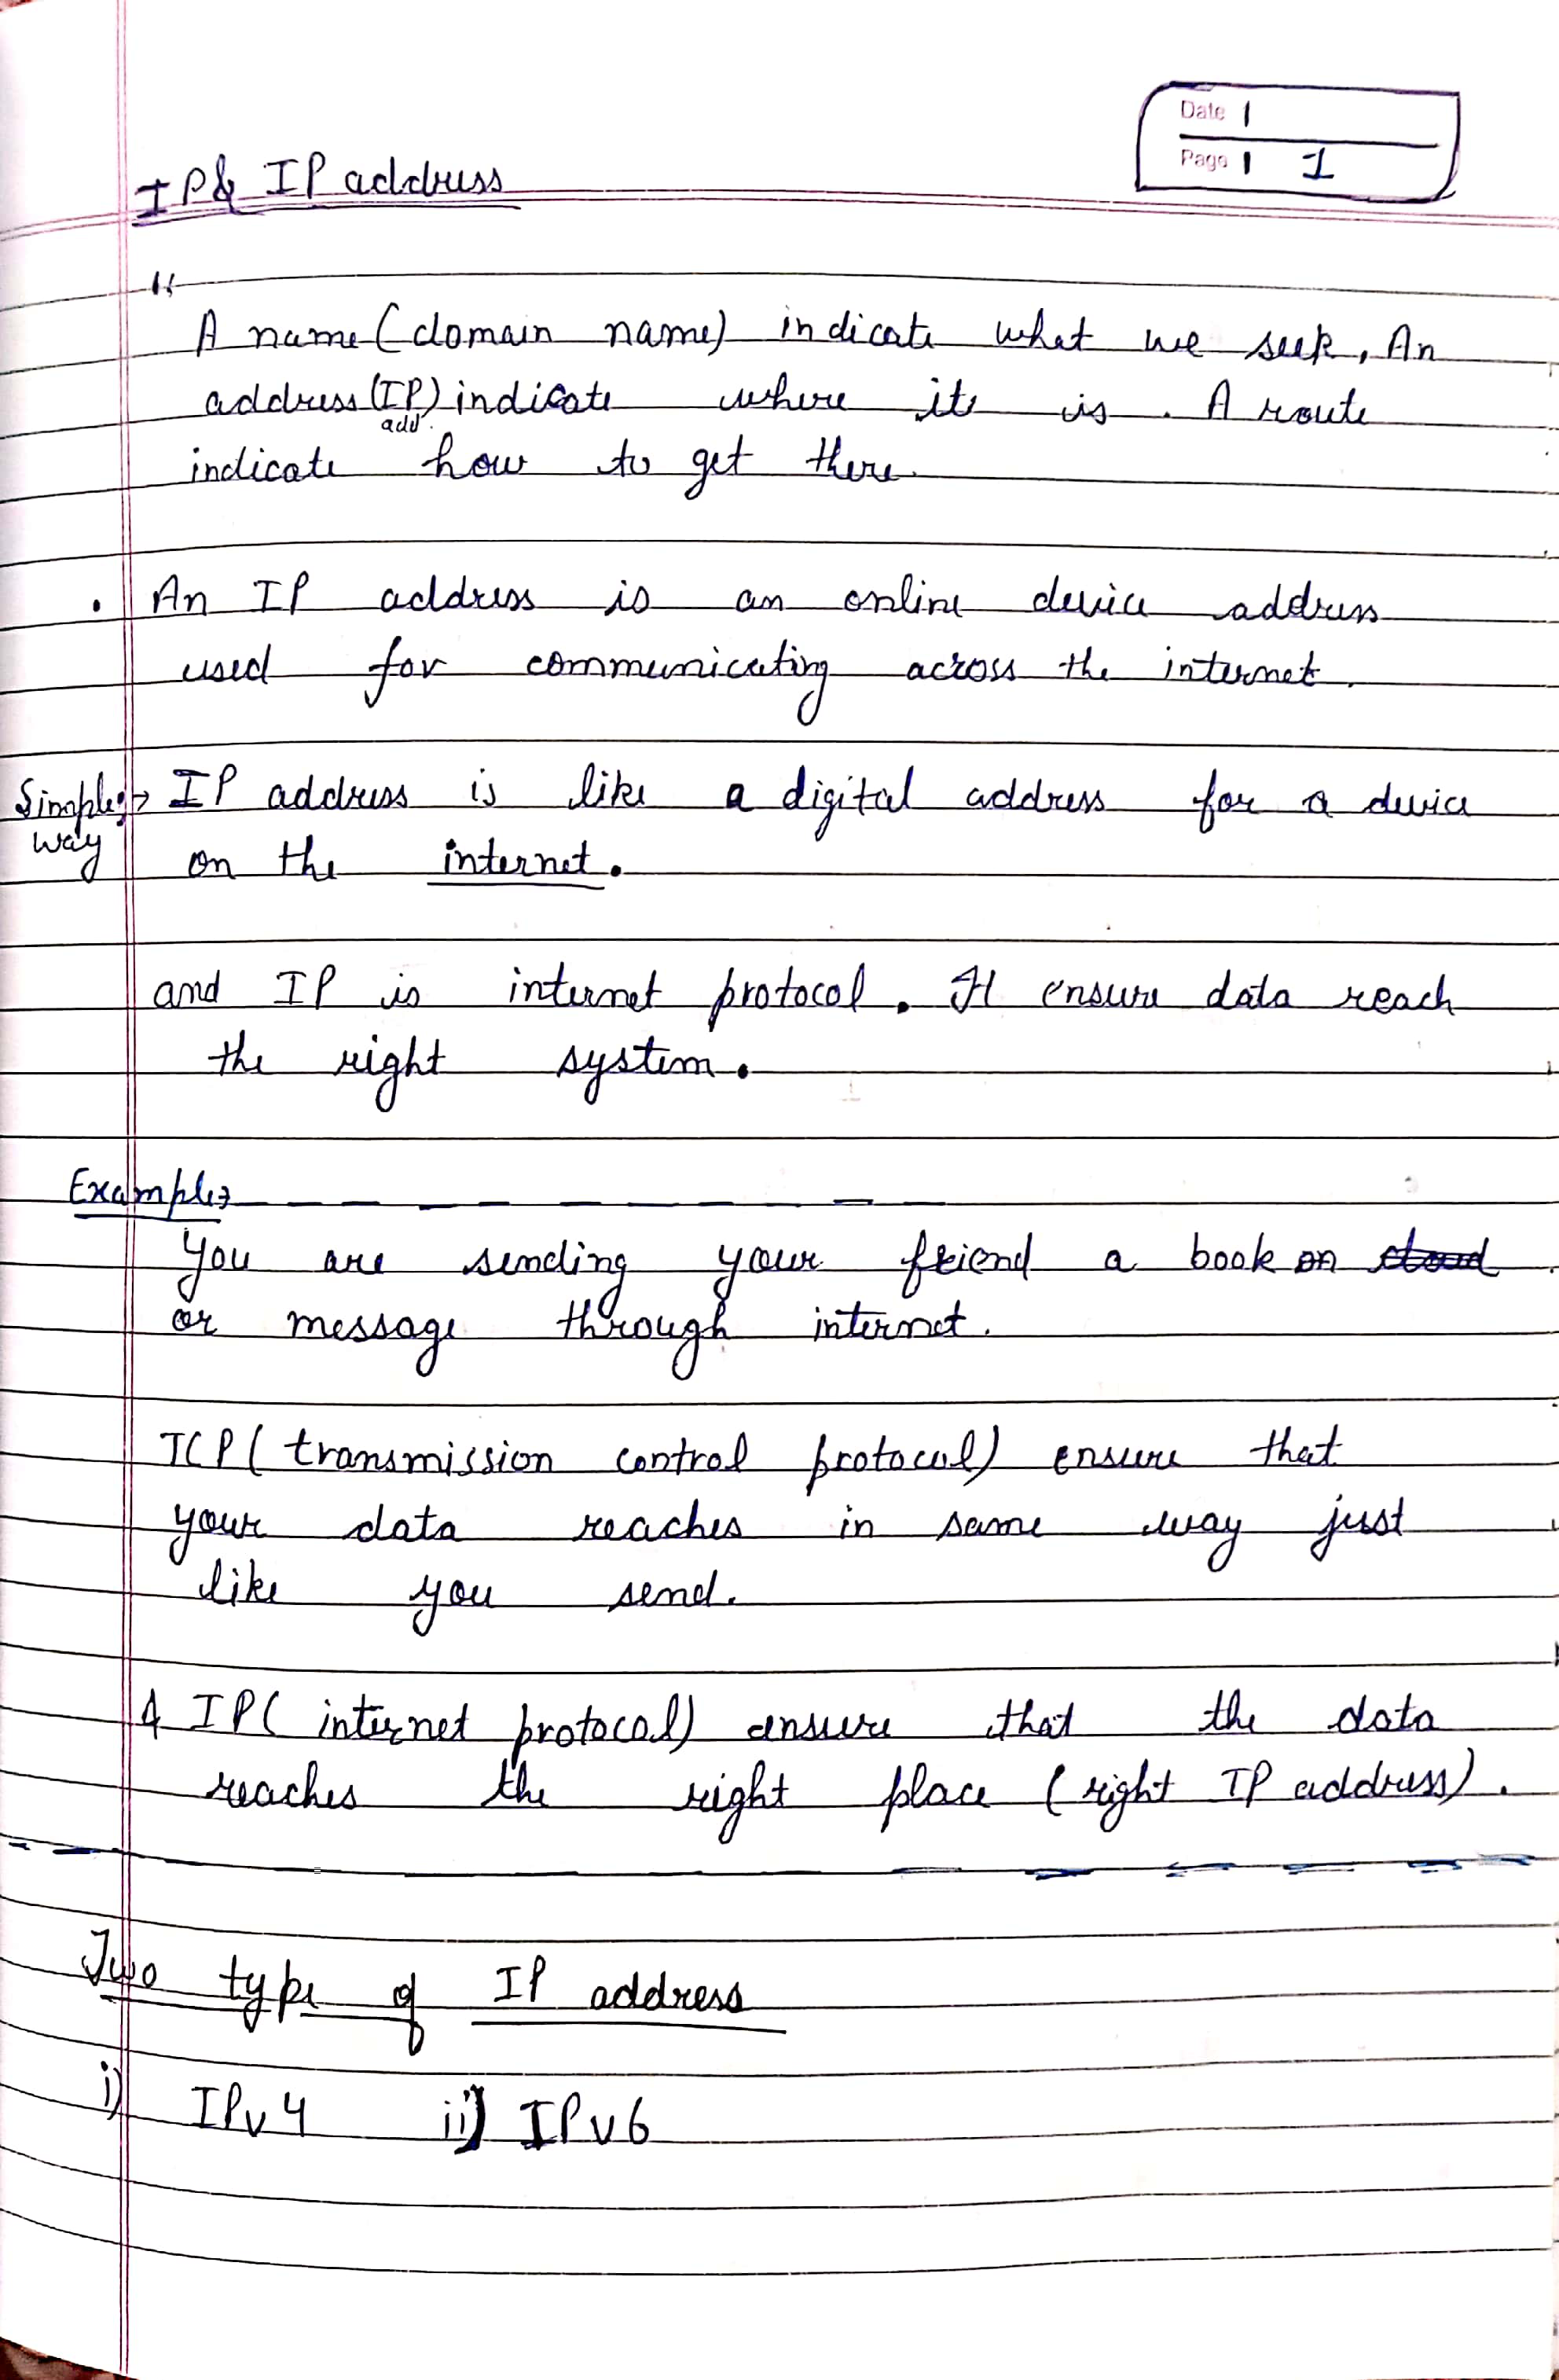 Date
Page 1
IP & IP address
"
A name (domain name) indicate what we seek, An
address (IP) indicate where its is. A route
add.
indicate how to get there
• An IP address is an online device address
used for communicating across the internet.
Simple → IP address is like a digital address for a device
way on the internet.
and IP is internet protocol. It ensure data reach
the right system.
Example →
You are sending your friend a book on
or message through internet.
TCP (transmission control protocol) ensure that
your data reaches in same way just
like you send.
& IP (internet protocol) ensure that the data
reaches the right place (right IP address).
Two type of IP address
i) IPv4 ii) IPv6